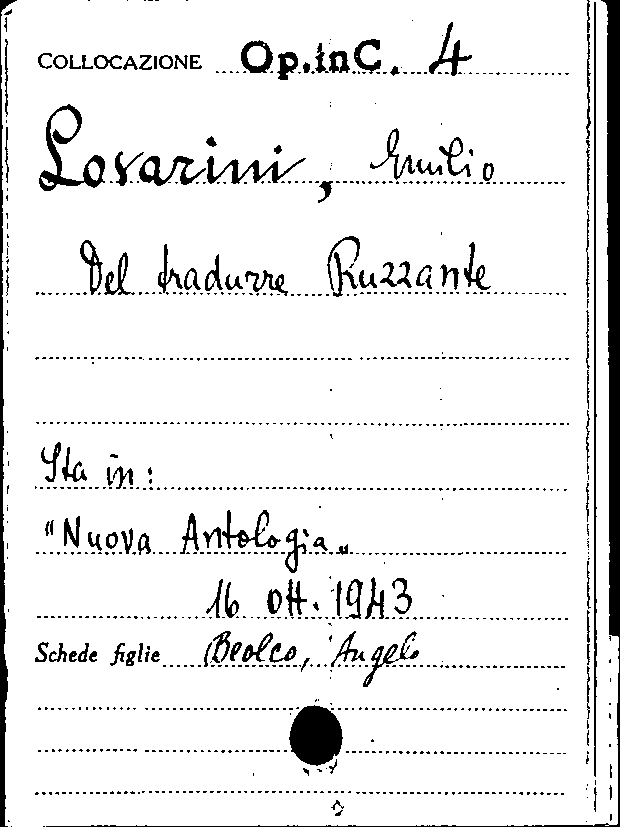 COLLOCAZIONE Op.inC. 4
Lovarini, Emilio
Del tradurre Ruzzante
Sta in:
"Nuova Antologia"
16 Ott. 1943
Schede figlie Beolco, Angelo